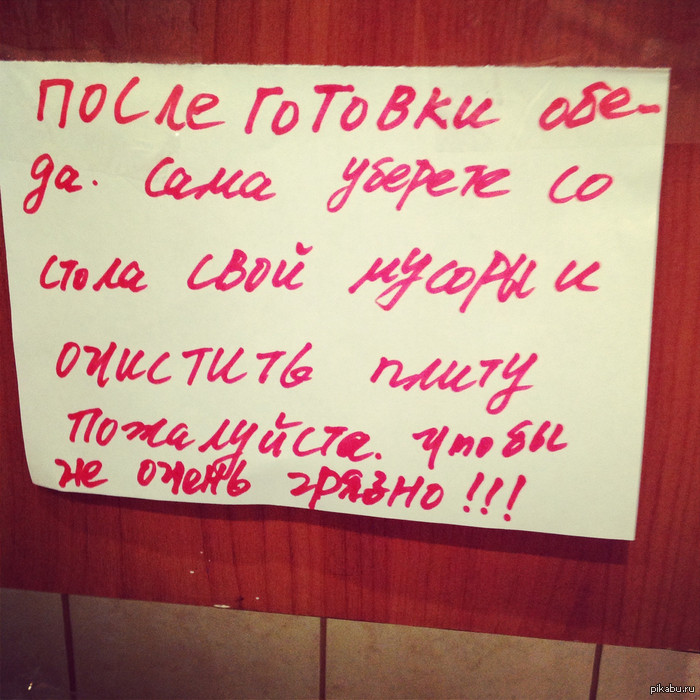 после готовки обе-
да. сама уберете со
стола свой мусоры и
очистить плиту
пожалуйста. чтобы
не очень грязно!!!
pikabu.ru